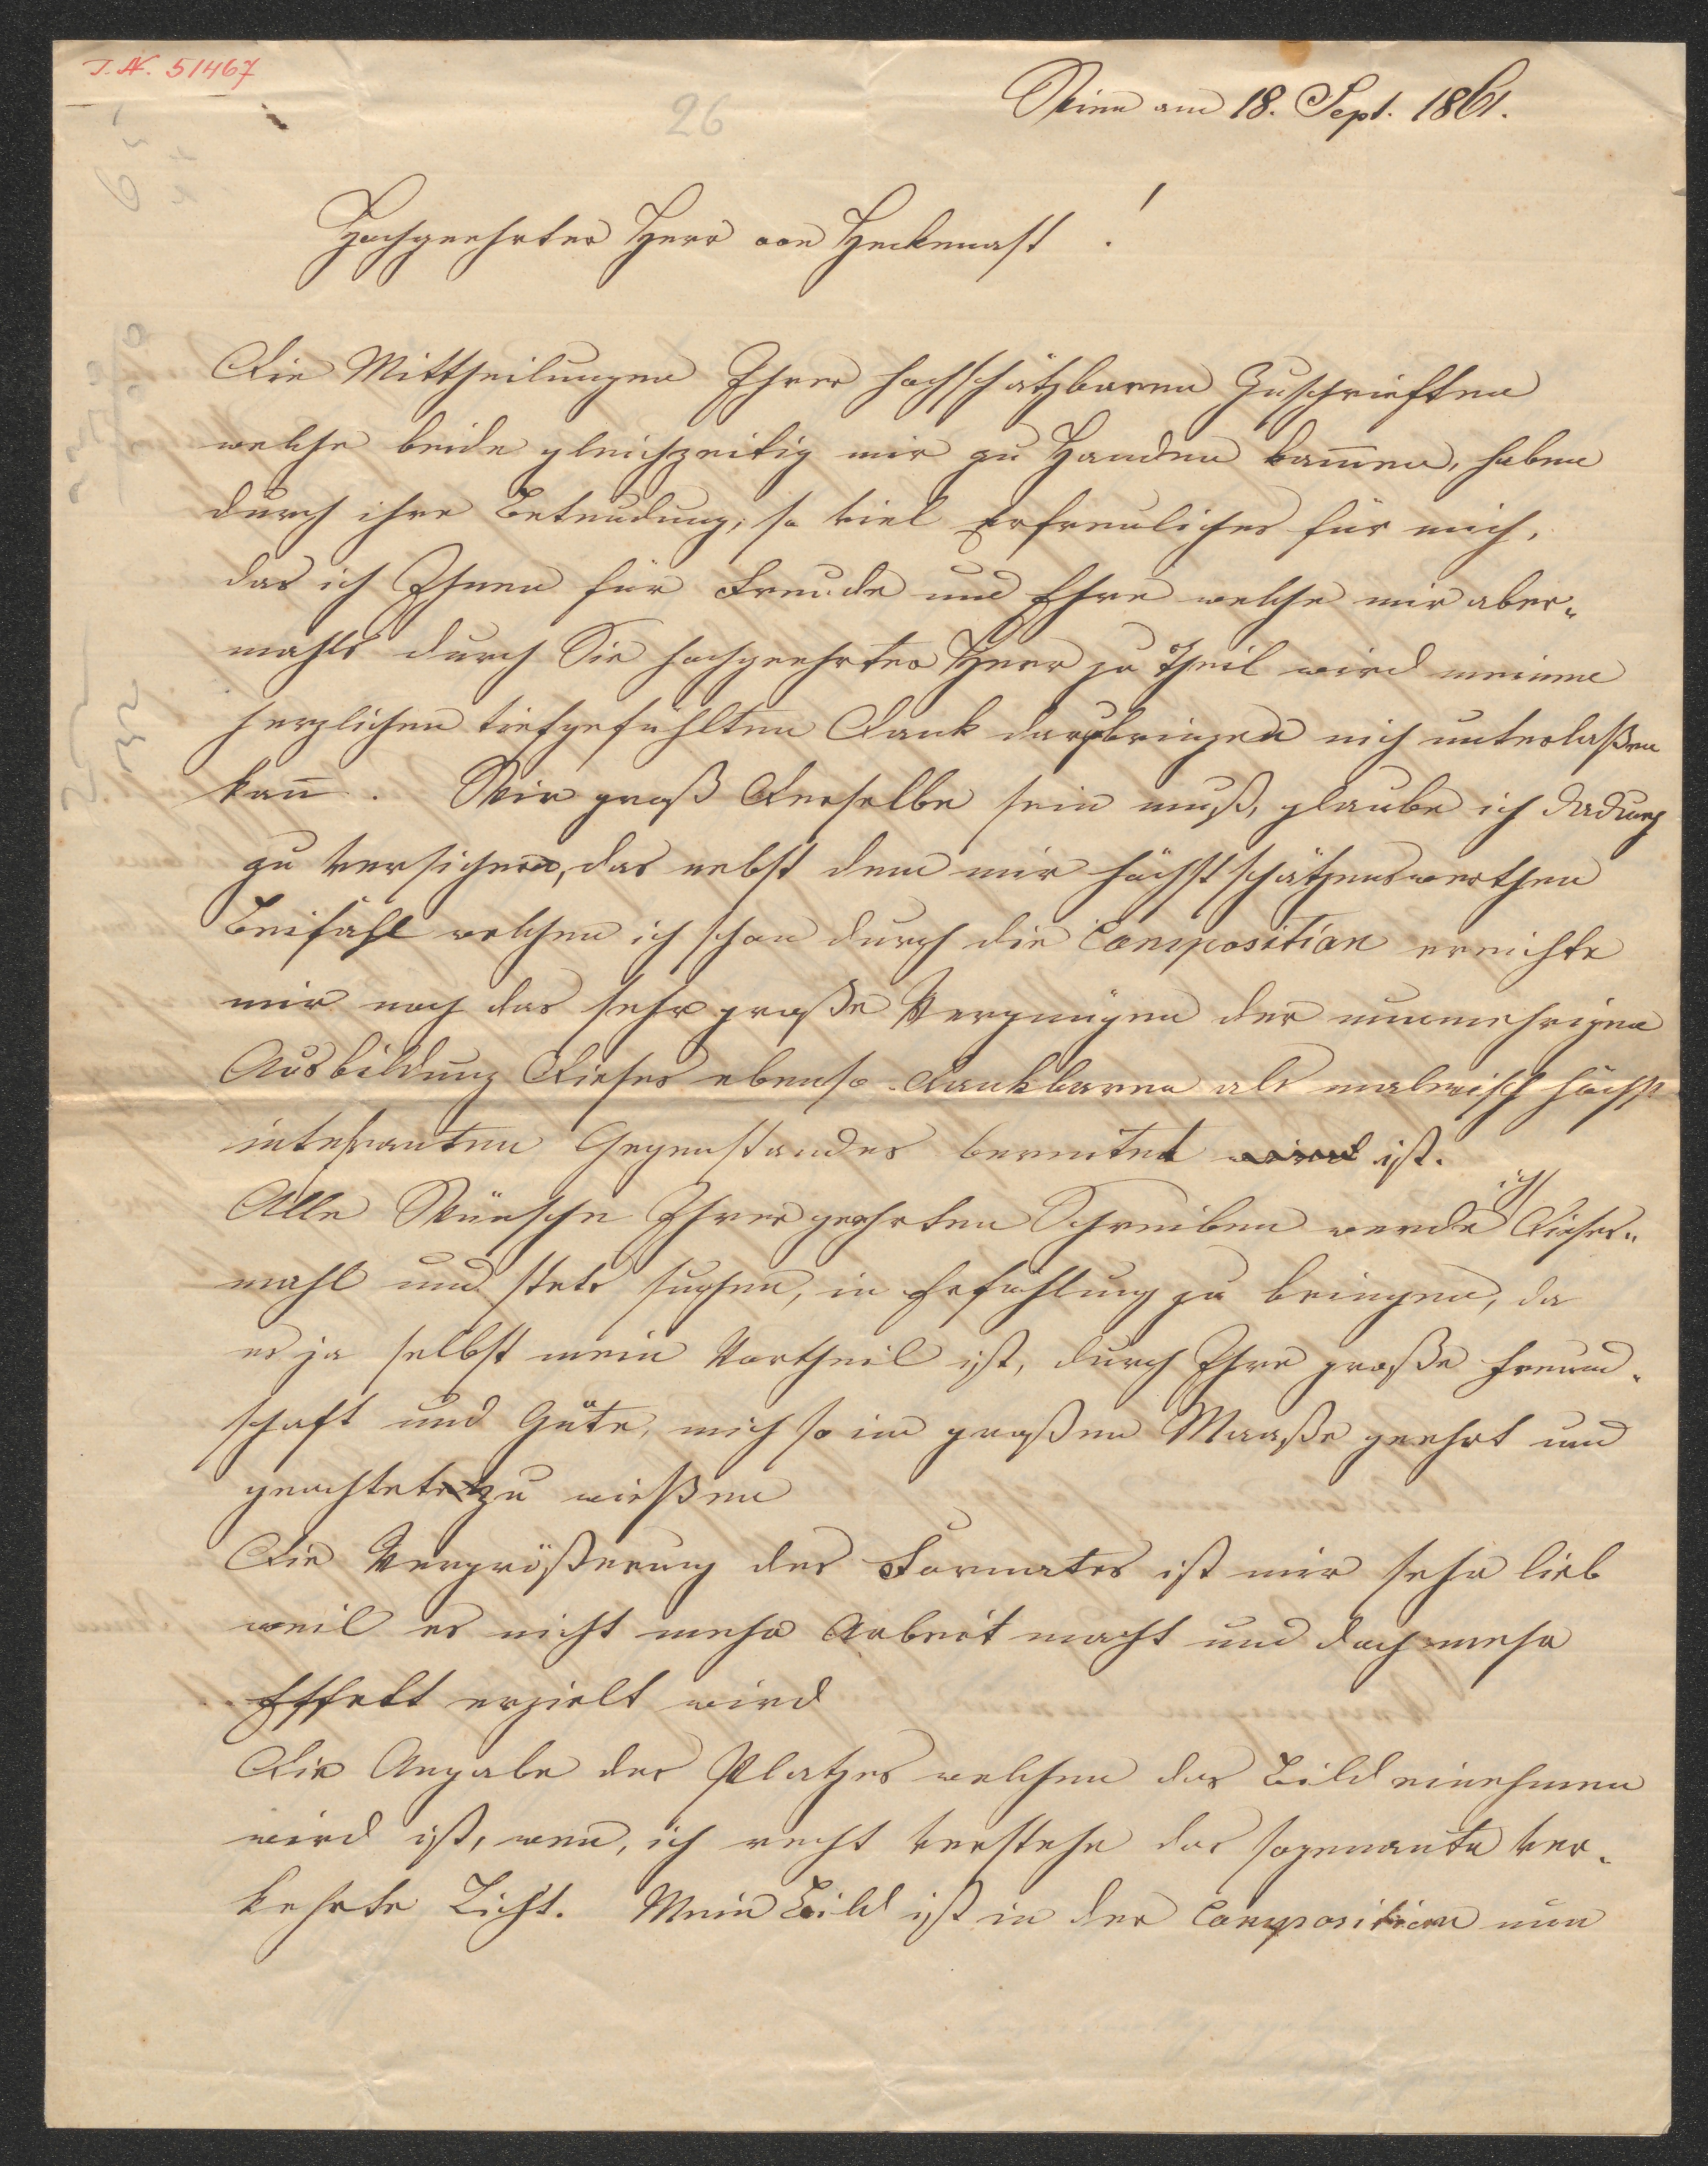 I.N. 51467
26
Wien am 18. Sept. 1861.
Hochgeehrter Herr von Heckenast !
Die Mittheilungen Ihrer hochschätzbaren Zuschrieften
welche beide gleichzeitig mir zu Handen kam̅en, haben
durch ihre Beteudung, so viel Erfreuliches für mich,
das ich Ihnen für Freude und Ehre welche mir aber„
mahls durch Sie hochgeehrter Herr zu Theil wird meinen
herzlichen tiefgefühlten Dank darzubringen nich unterlaßen
kan̅. Wie groß Derselbe sein muß, glaube ich dadurch
zu versichern, das nebst dem mir höchst schätzenswerthen
Beifahl welchen ich schon durch die Composition erreichte
mir noch das sehr große Vergnügen der nunmehrigen
Ausbildung Dieses ebenso Dankbaren als malerisch höchst
intessanten Gegenstandes bereitet wird ist.
Alle Wünsche Ihrer geehrten Schreiben werde ich Dieses„
mahl und stets suchen, in Erfühlung zu bringen, da
es ja selbst mein Vortheil ist, durch Ihre große Freund„
schaft und Güte, mich so im großen Maaße geehrt und
geachtet zu wießen
Die Vergrößerung des Formates ist mir sehr lieb
weil es nicht mehr Arbeit macht und doch mehr
Effekt erzielt wird
Die Angabe des Platzes welchen das Bild einehmen
wird ist, wen, ich recht verstehe das sogenante ver„
kehrte Licht. Mein Bild ist in der Composition nun